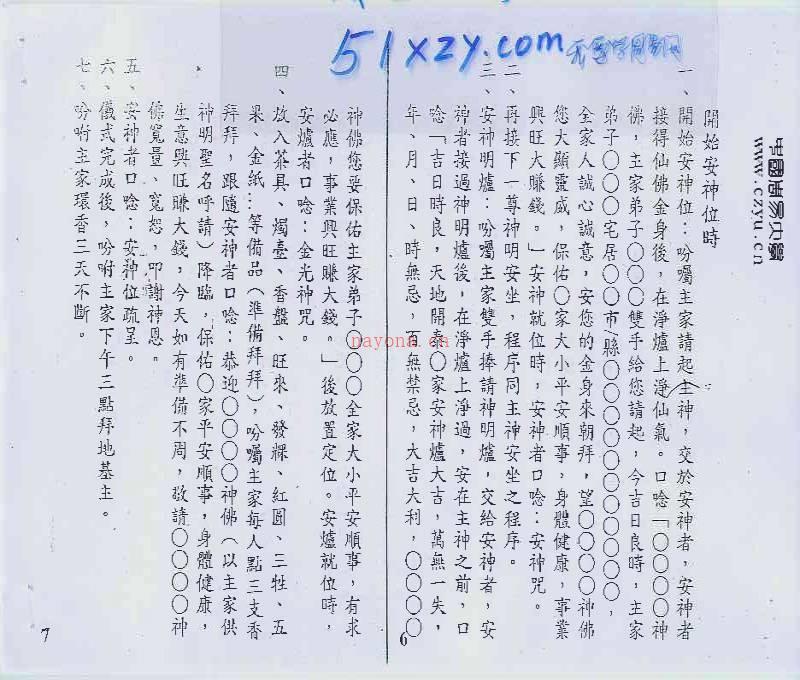 51xzy.com
中國易
www.czyu.cn
nayona.cn
開始安神位時
一、開始安神位：吩囑主家請起主神，交於安神者，安神者
接得仙佛金身後，在淨爐上淨仙氣。口唸「〇〇〇〇神
佛，主家弟子〇〇〇雙手給您請起，今吉日良時，主家
弟子〇〇〇宅居〇〇市/縣〇〇〇〇〇〇〇〇〇〇，
全家人誠心誠意，安您的金身來朝拜，望〇〇〇〇神佛
您大顯靈威，保佑〇家大小平安順事，身體健康，事業
興旺大賺錢。」安神就位時，安神者口唸：安神咒。
二、再接下一尊神明安坐，程序同主神安坐之程序。
三、安神明爐：吩囑主家雙手捧請神明爐，交給安神者，安
神者接過神明爐後，在淨爐上淨過，安在主神之前，口
唸「吉日時良，天地開泰〇家安神爐大吉，萬無一失，
年、月、日、時無忌，百無禁忌，大吉大利，〇〇〇〇
6
神佛您要保佑主家弟子〇〇〇全家大小平安順事，有求
必應，事業興旺賺大錢。」後放置定位。安爐就位時，
安爐者口唸：金光神咒。
四、放入茶具、燭臺、香盤、旺來、發粿、紅圓、三牲、五
果、金紙…等備品（準備拜拜），吩囑主家每人點三支香
拜拜，跟隨安神者口唸：恭迎〇〇〇〇神佛（以主家供
神明聖名呼請）降臨，保佑〇家平安順事，身體健康，
生意興旺賺大錢，今天如有準備不周，敬請〇〇〇〇神
佛寬量、寬恕，叩謝神恩。
五、安神者口唸：安神位疏呈。
六、儀式完成後，吩咐主家下午三點拜地基主。
七、吩咐主家環香三天不斷。
7